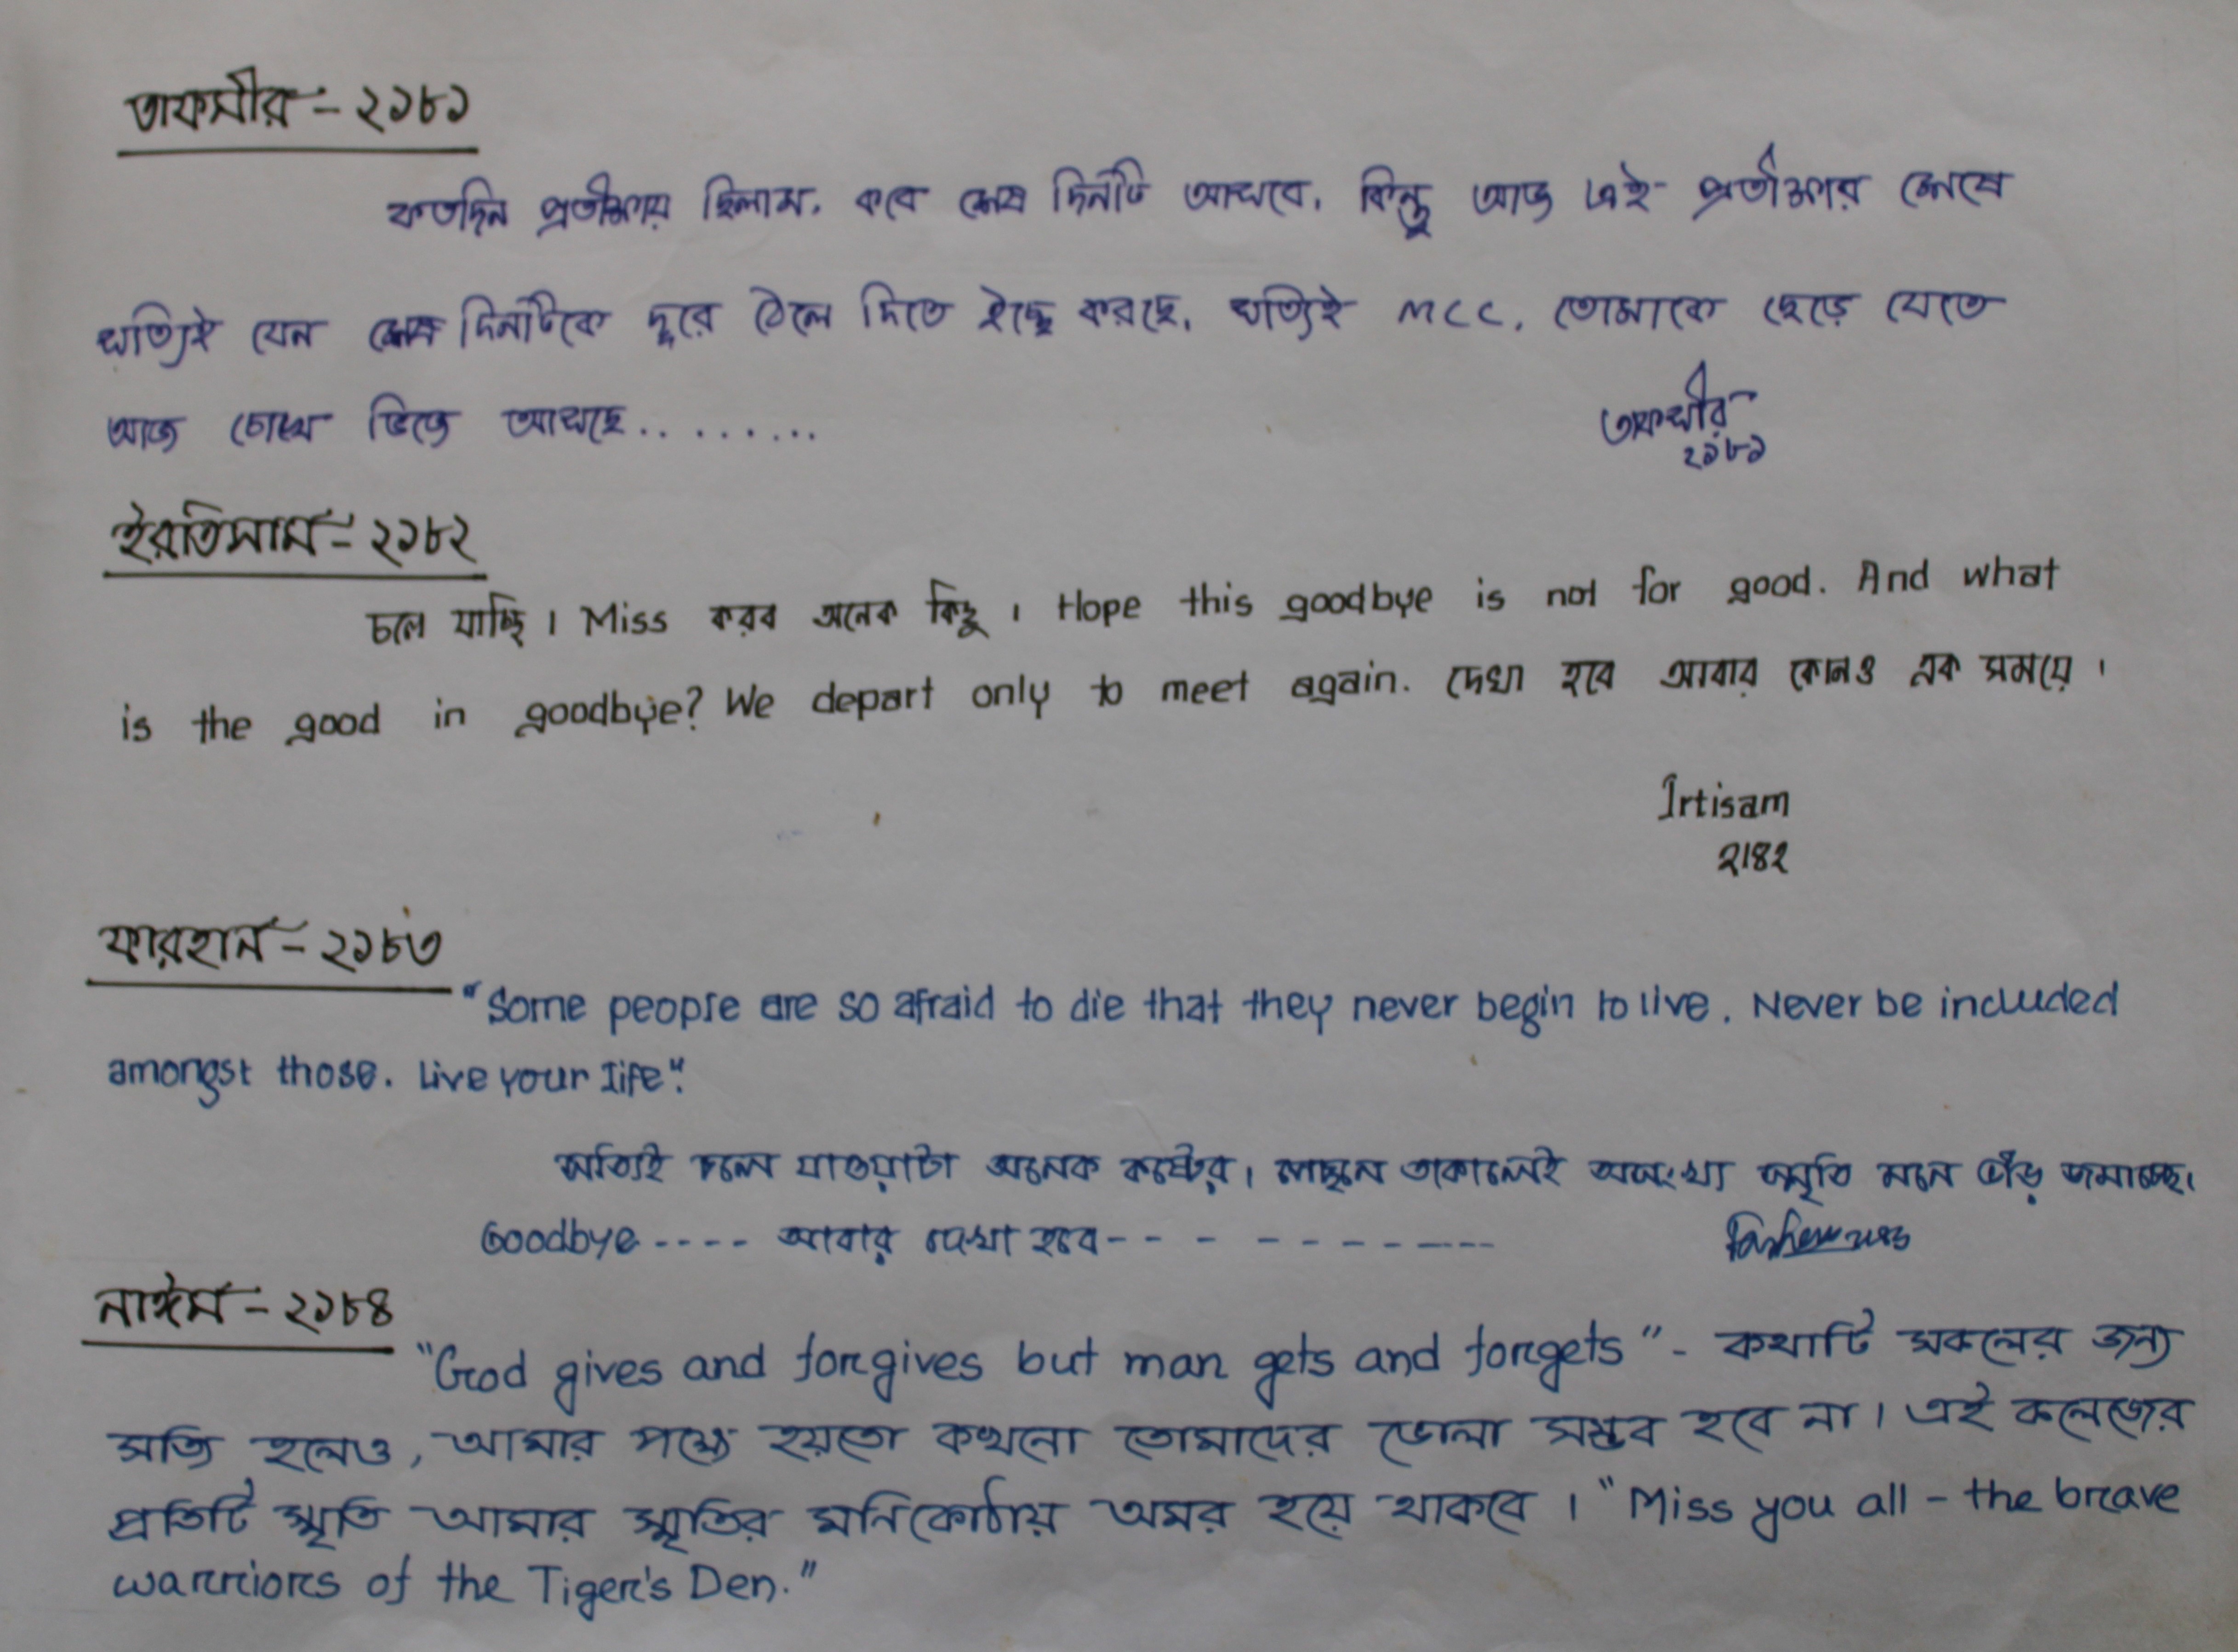 তাফসীর - ২১৮১
কতদিন প্রতীক্ষায় ছিলাম, কবে শেষ দিনটি আসবে, কিন্তু আজ এই প্রতীক্ষার শেষে
সত্যিই যেন শেষ দিনটিকে দূরে ঠেলে দিতে ইচ্ছে করছে, সত্যিই MCC, তোমাকে ছেড়ে যেতে
আজ চোখ ভিজে আসছে.........
তাফসীর
২১৮১
ইরতিসাম - ২১৮২
চলে যাচ্ছি। Miss করব অনেক কিছু। Hope this goodbye is not for good. And what
is the good in goodbye? We depart only to meet again. দেখা হবে আবার কোনও এক সময়ে।
Irtisam
2182
ফারহান - ২১৮৩
"Some people are so afraid to die that they never begin to live. Never be included
amongst those. Live your life".
সত্যিই চলে যাওয়াটা অনেক কষ্টের। পেছনে তাকালেই অসংখ্য স্মৃতি মনে ভীঁড় জমাচ্ছে।
Goodbye ---- আবার দেখা হবে-- - - - - - - ----
Farhan 2183
নাঈম - ২১৮৪
"God gives and forgives but man gets and forgets" - কথাটি সকলের জন্য
সত্যি হলেও, আমার পক্ষে হয়তো কখনো তোমাদের ভোলা সম্ভব হবে না। এই কলেজের
প্রতিটি স্মৃতি আমার স্মৃতির মনিকোঠায় অমর হয়ে থাকবে। "Miss you all - the brave
warriors of the Tiger's Den."